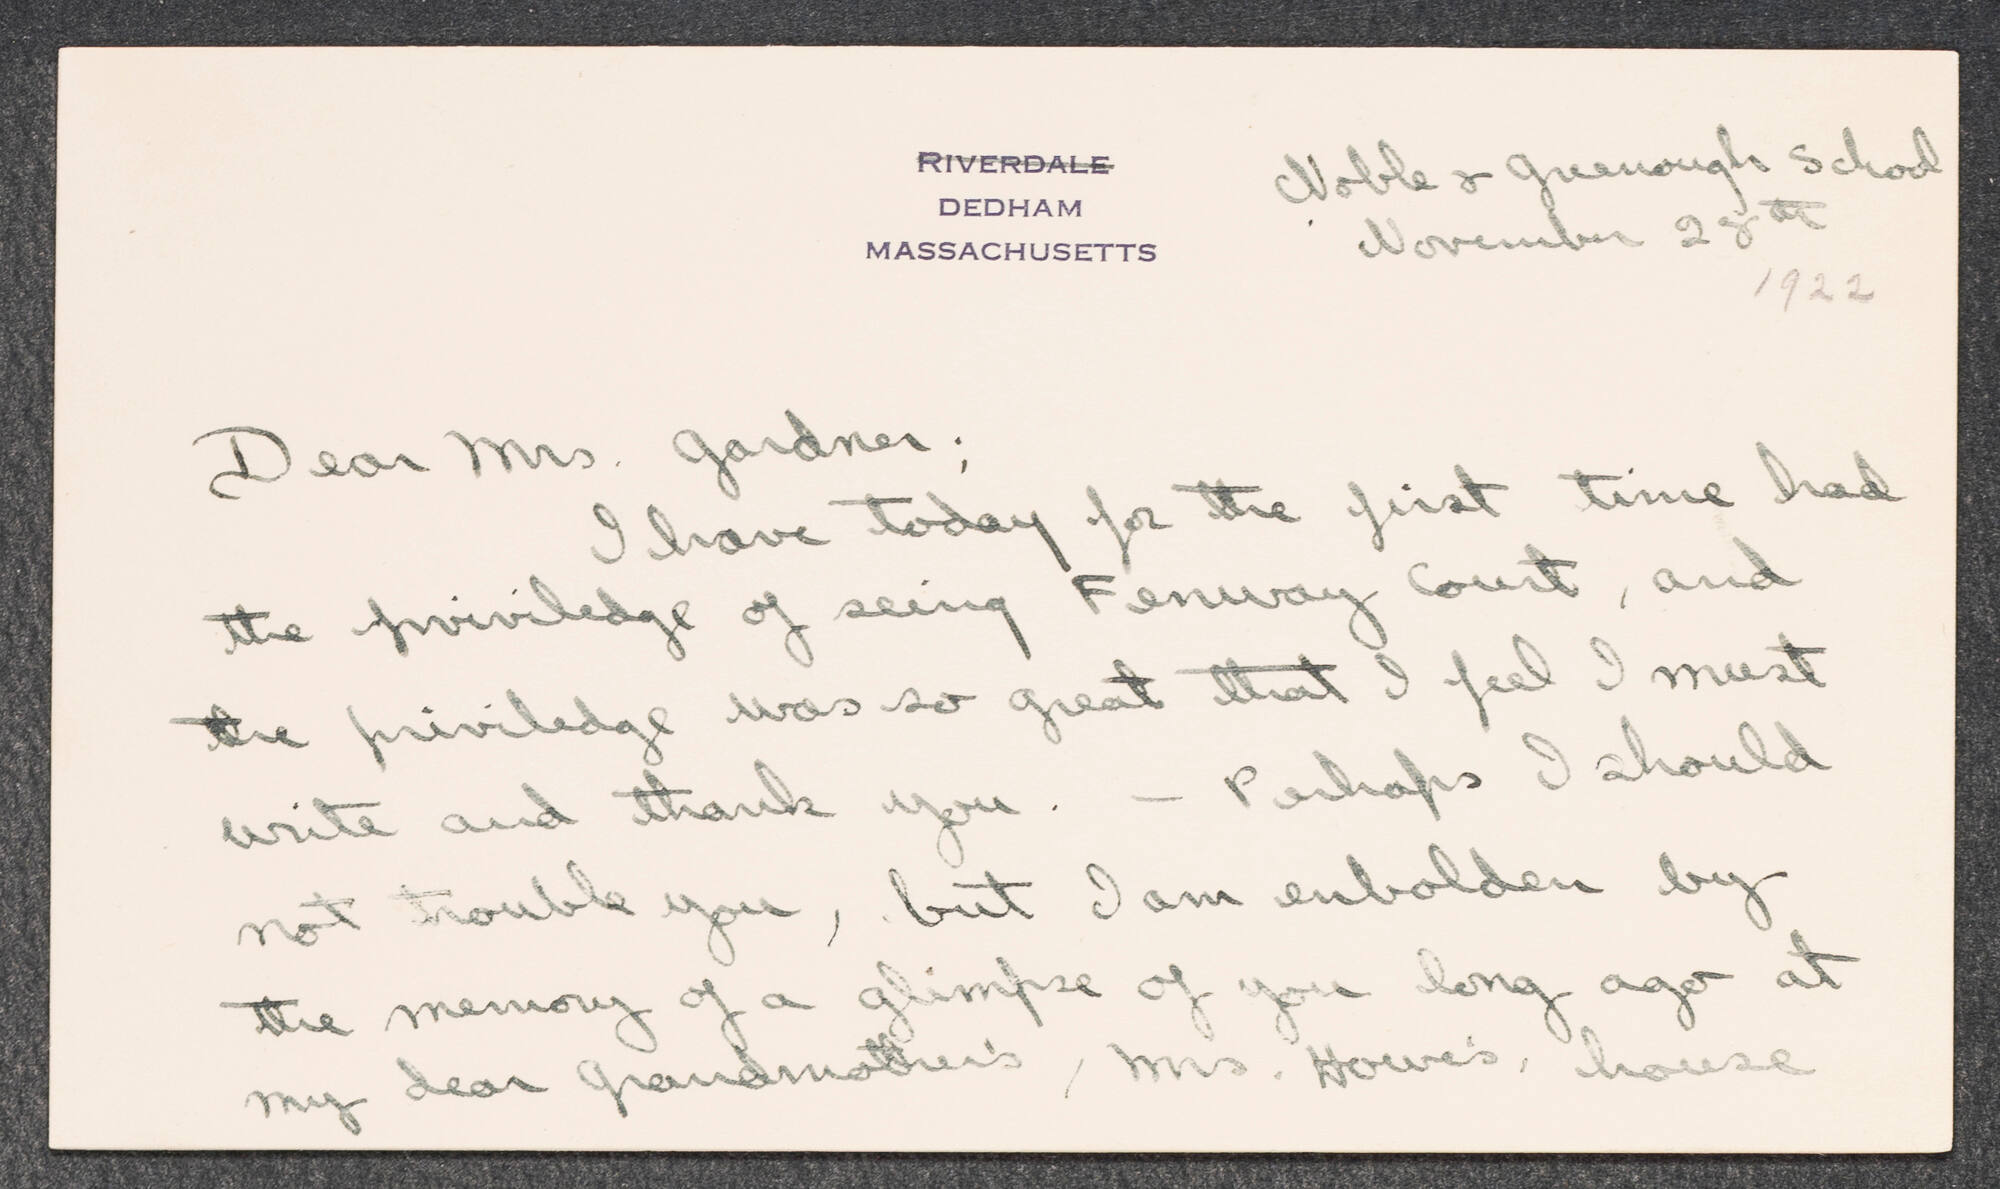 RIVERDALE
DEDHAM
MASSACHUSETTS
Noble & Greenough School
November 28th
1922
Dear Mrs. Gardner;
I have today for the first time had
the priviledge of seeing Fenway Court, and
the priviledge was so great that I feel I must
write and thank you. — Perhaps I should
not trouble you, but I am enbolden by
the memory of a glimpse of you long ago at
my dear grandmother's, Mrs. Howe's, house